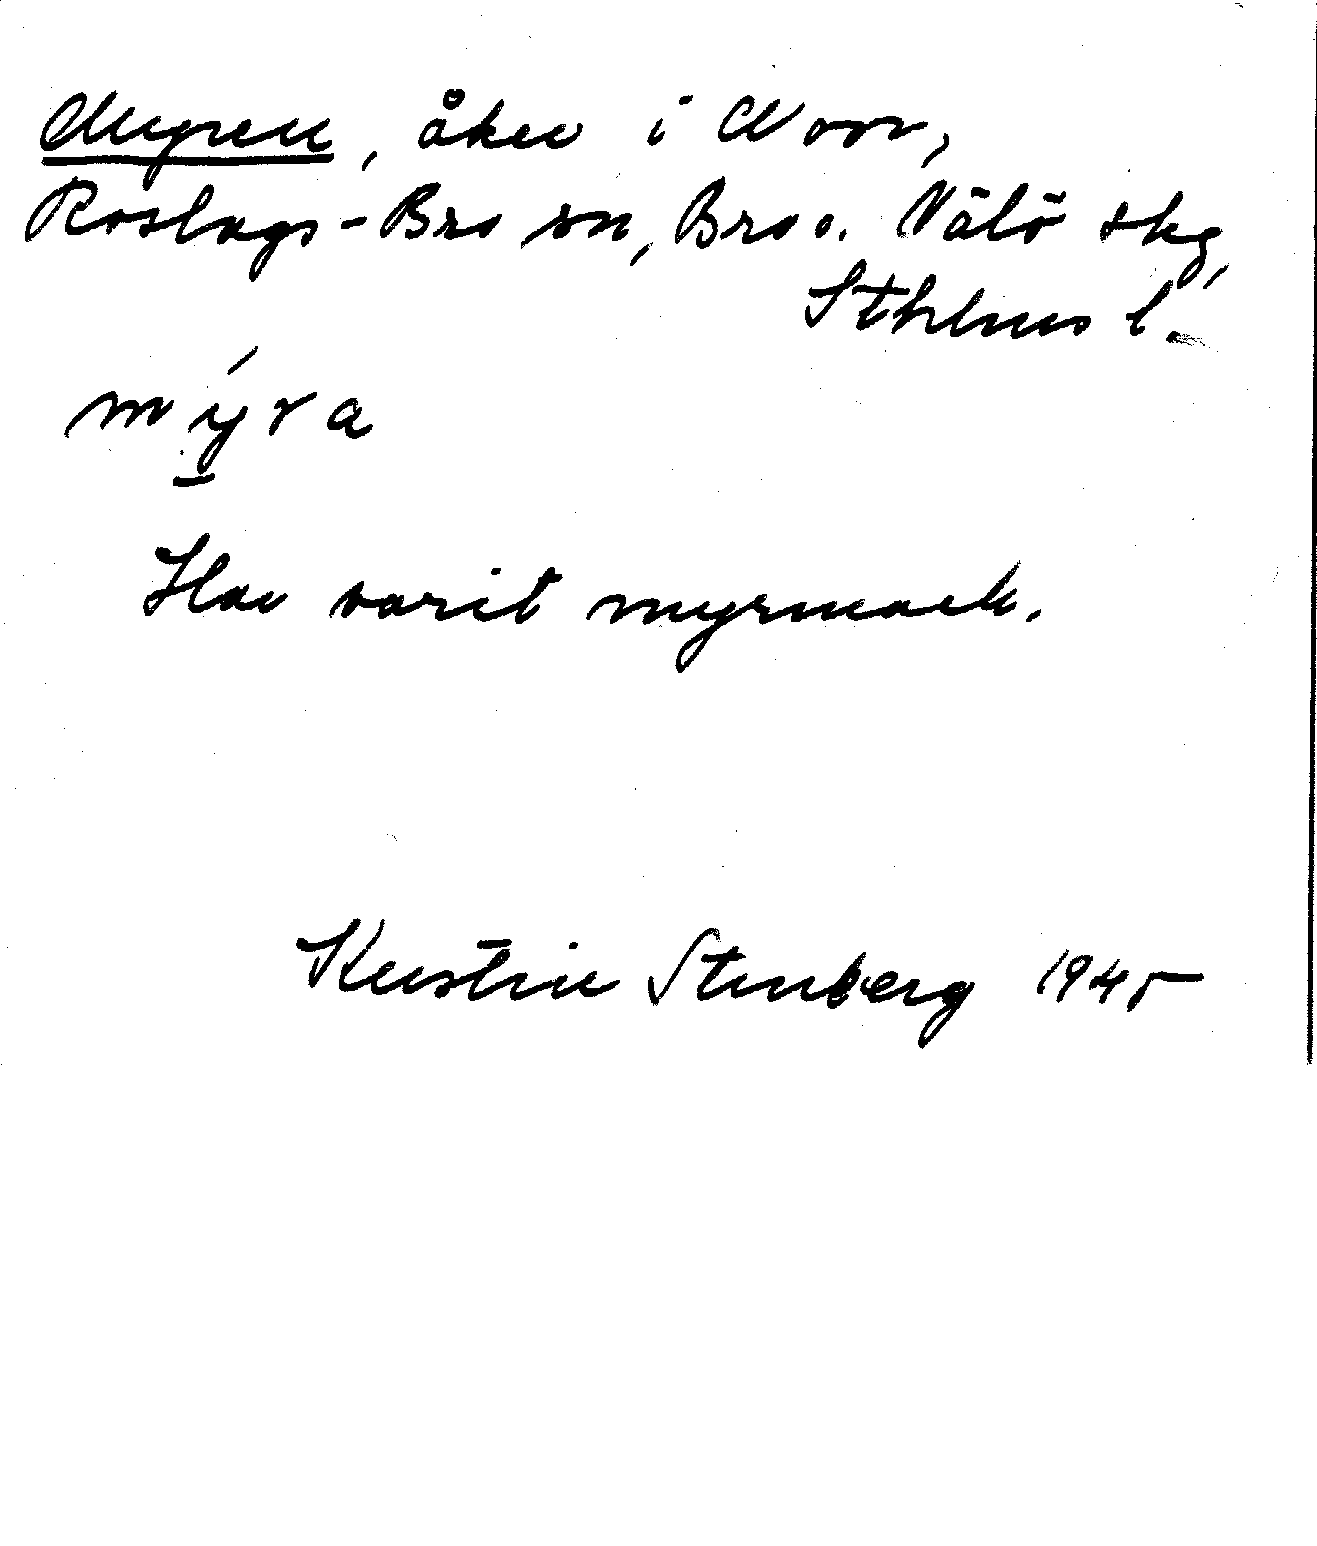 Myren, åker i Norr,
Roslags-Bro sn, Bro o. Vätö skg,
Sthlms l.
mýra
Har varit myrmark.
Kerstin Stenberg 1945